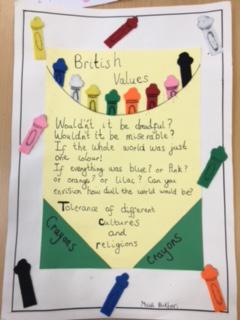 British
Values
Wouldn't it be dreadful?
Wouldn't it be miserable?
If the whole world was just
one colour!
If everything was blue? or Pink?
or orange? or lilac? Can you
envision how dull the world would be?
Tolerance of different
Cultures
and
religions
Crayons
Crayons